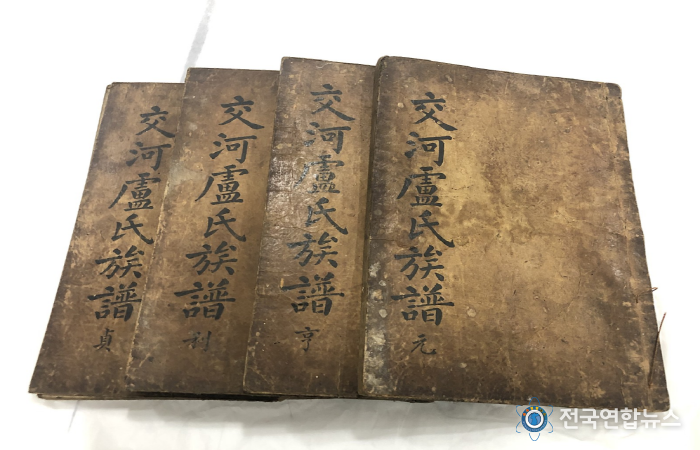 交河盧氏族譜
貞
交河盧氏族譜
利
交河盧氏族譜
亨
交河盧氏族譜
元
전국연합뉴스